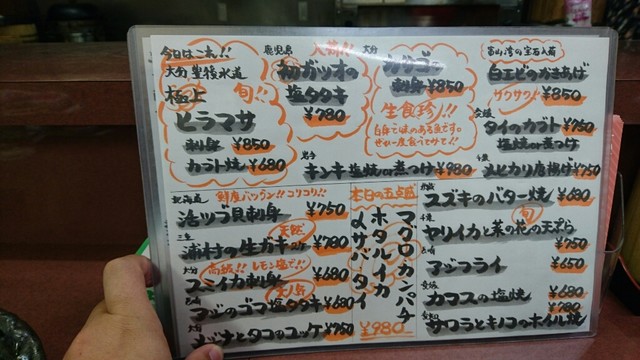 今日はこれ!!
大分 豊後水道
極上 旬!!
ヒラマサ
刺身 ¥850
カブト焼 ¥680
鹿児島 入荷!!
初ガツオの
塩タタキ
¥780
大分
カリゴ
刺身 ¥850
生食珍!!
白身で味のある魚です。
ぜひ一度食うてみて!!
富山湾の宝石入荷
白エビのかきあげ
サクサク! ¥850
愛媛
タイのカブト ¥750
塩焼 or 煮つけ
岩手
キンキ塩焼 or 煮つけ ¥980
千葉
メヒカリ唐揚げ ¥750
北海道 鮮度バツグン!!コリコリ!!
活ツブ貝刺身 ¥750
三重 天然
浦村の生ガキ ¥780
大分 高級!! レモン塩で!!
スミイカ刺身 ¥680
宮崎 大人気
アジのゴマ塩タタキ ¥680
大分
メジナとタコのユッケ ¥750
本日の五点盛
マグロ カンパチ
ホタルイカ
メサバ タイ
¥980
茨城
スズキのバター焼 ¥680
千葉 旬
ヤリイカと菜の花の天ぷら
¥750
宮崎
アジフライ ¥650
愛媛
カマスの塩焼 ¥680
愛知 ¥780
サワラとキノコのホイル焼